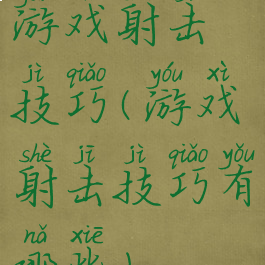 游戏射击
jì qiǎo yóu xì
技巧(游戏
shè jī jì qiǎo yǒu
射击技巧有
nǎ xiē